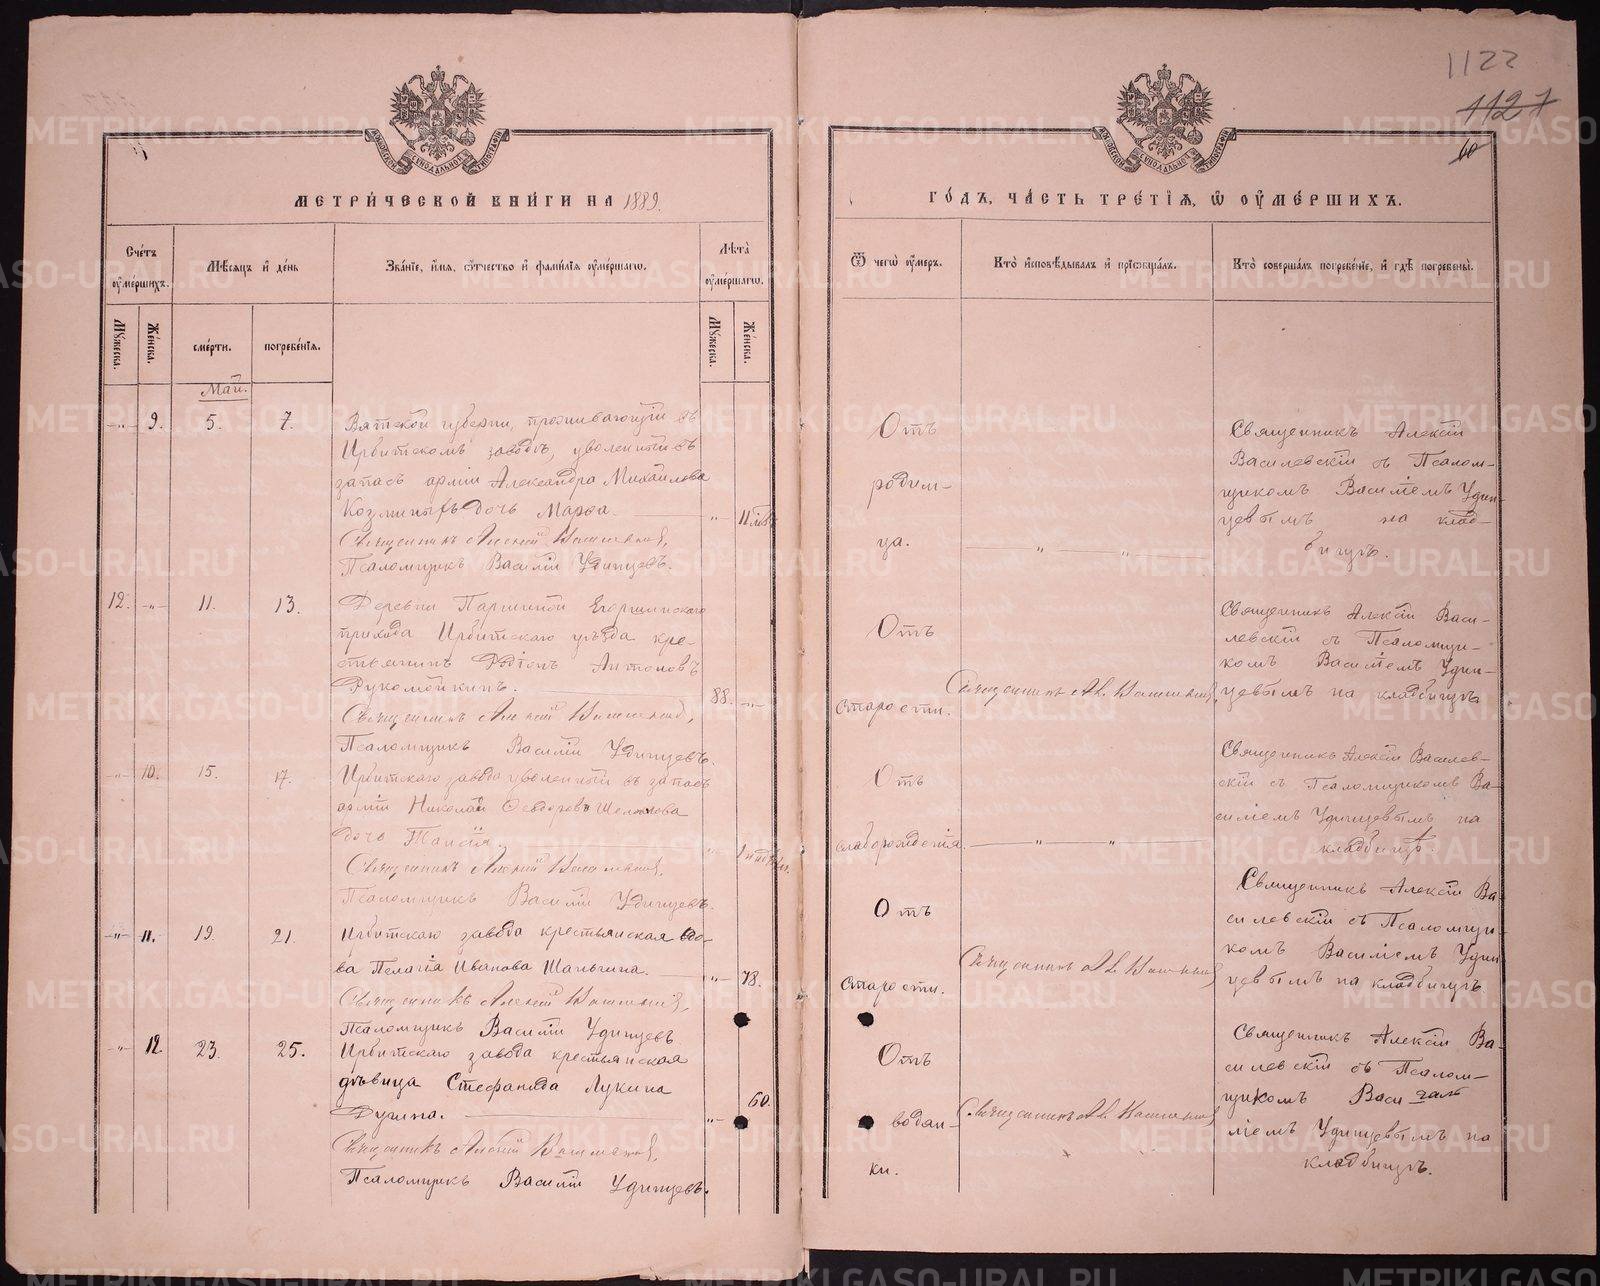 1122
1127
60
МОСКОВСКОЙ СУНОДАЛЬНОЙ ТИПОГРАФІИ
МЕТРИ́ЧЕСКОЙ КНИ́ГИ НА 1889.
Счетъ ѹмершихъ.
Мѣсяцъ и день
Званіе, имя, ѻтчество и фамилія ѹмершагѡ.
Лѣта ѹмершагѡ.
Мужеска.
Женска.
смерти.
погребенія.
Мужеска.
Женска.
Май.
-"- 9. 5. 7. Вятской губерни, проживающій въ
Ирбитскомъ заводѣ, уволенный въ
запасъ арміи Александра Михаилова
Козминыхъ дочь Марѳа. -"- 11 мѣс.
Священникъ Алексій Василевскій,
Псаломщикъ Василій Удинцевъ.
12. -"- 11. 13. Деревни Паршиной Егоршинскаго
прихода Ирбитскаго уѣзда кре-
стьянинъ Родіонъ Антоновъ
Рукомойкинъ. 88. -"-
Священникъ Алексій Василевскій,
Псаломщикъ Василій Удинцевъ.
-"- 10. 15. 17. Ирбитскаго завода уволенный въ запасъ
арміи Николай Ѳеодоровъ
дочь Таисія. -"- 1 недѣли.
Священникъ Алексій Василевскій,
Псаломщикъ Василій Удинцевъ.
-"- 11. 19. 21. Ирбитскаго завода крестьянская вдо-
ва Пелагія Иванова Шаньгина. -"- 78.
Священникъ Алексій Василевскій,
Псаломщикъ Василій Удинцевъ
-"- 12. 23. 25. Ирбитскаго завода крестьянская
дѣвица Стефанида Лукина
-"- 60.
Священникъ Алексій Василевскій,
Псаломщикъ Василій Удинцевъ.
МОСКОВСКОЙ СУНОДАЛЬНОЙ ТИПОГРАФІИ
ГО́ДЪ, ЧА́СТЬ ТРЕ́ТІЯ, Ѡ ОУМЕ́РШИХЪ.
Ѿ чегѡ ѹмеръ.
Кто исповѣдывалъ и пріобщалъ.
Кто совершалъ погребеніе, и гдѣ погребены.
Отъ
родим-
ца.
-"- -"-
Священникъ Алексій
Василевскій съ Псалом-
щикомъ Василіемъ Удин-
цевымъ на клад-
бищѣ.
Отъ
старости.
Священникъ Ал. Василевскій,
Священникъ Алексій Васи-
левскій съ Псаломщи-
комъ Василіемъ Удин-
цевымъ на кладбищѣ
Отъ
слаборожденія.
-"- -"-
Священникъ Алексій Василев-
скій съ Псаломщикомъ Ва-
силіемъ Удинцевымъ на
кладбищѣ.
Отъ
старости.
Священникъ Ал. Василевскій
Священникъ Алексій Ва-
силевскій съ Псаломщи-
комъ Василіемъ Удин
цевымъ на кладбищѣ
Отъ
водян-
ки.
Священникъ Ал. Василевскій
Священникъ Алексій Ва-
силевскій съ Псалом-
щикомъ Васи
ліемъ Удинцевымъ на
кладбищѣ.
METRIKI.GASO-URAL.RU